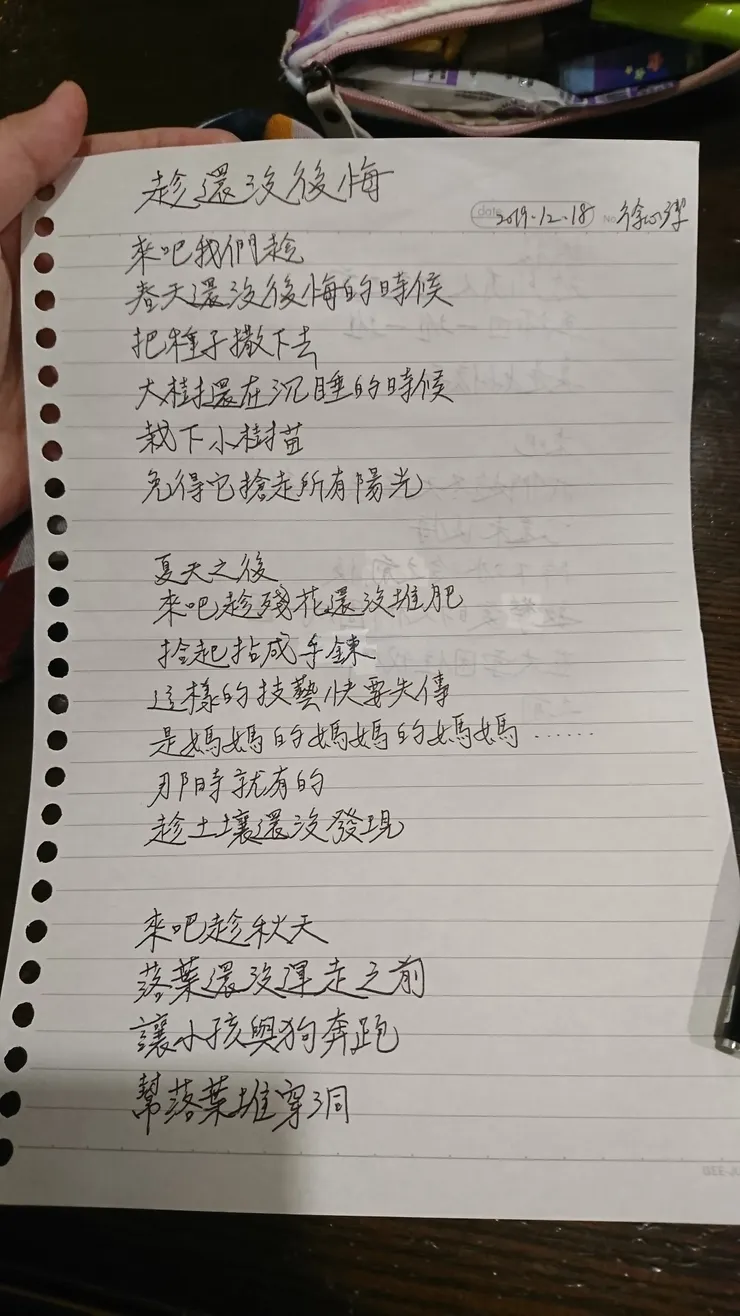 趁還沒後悔
date 2019.12.18 No. 徐心潔
來吧我們趁
春天還沒後悔的時候
把種子撒下去
大樹還在沉睡的時候
栽下小樹苗
免得它搶走所有陽光
夏天之後
來吧趁殘花還沒堆肥
拾起拈成手鍊
這樣的技藝快要失傳
是媽媽的媽媽的媽媽……
那時就有的
趁土壤還沒發現
來吧趁秋天
落葉還沒運走之前
讓小孩與狗奔跑
幫落葉堆穿洞